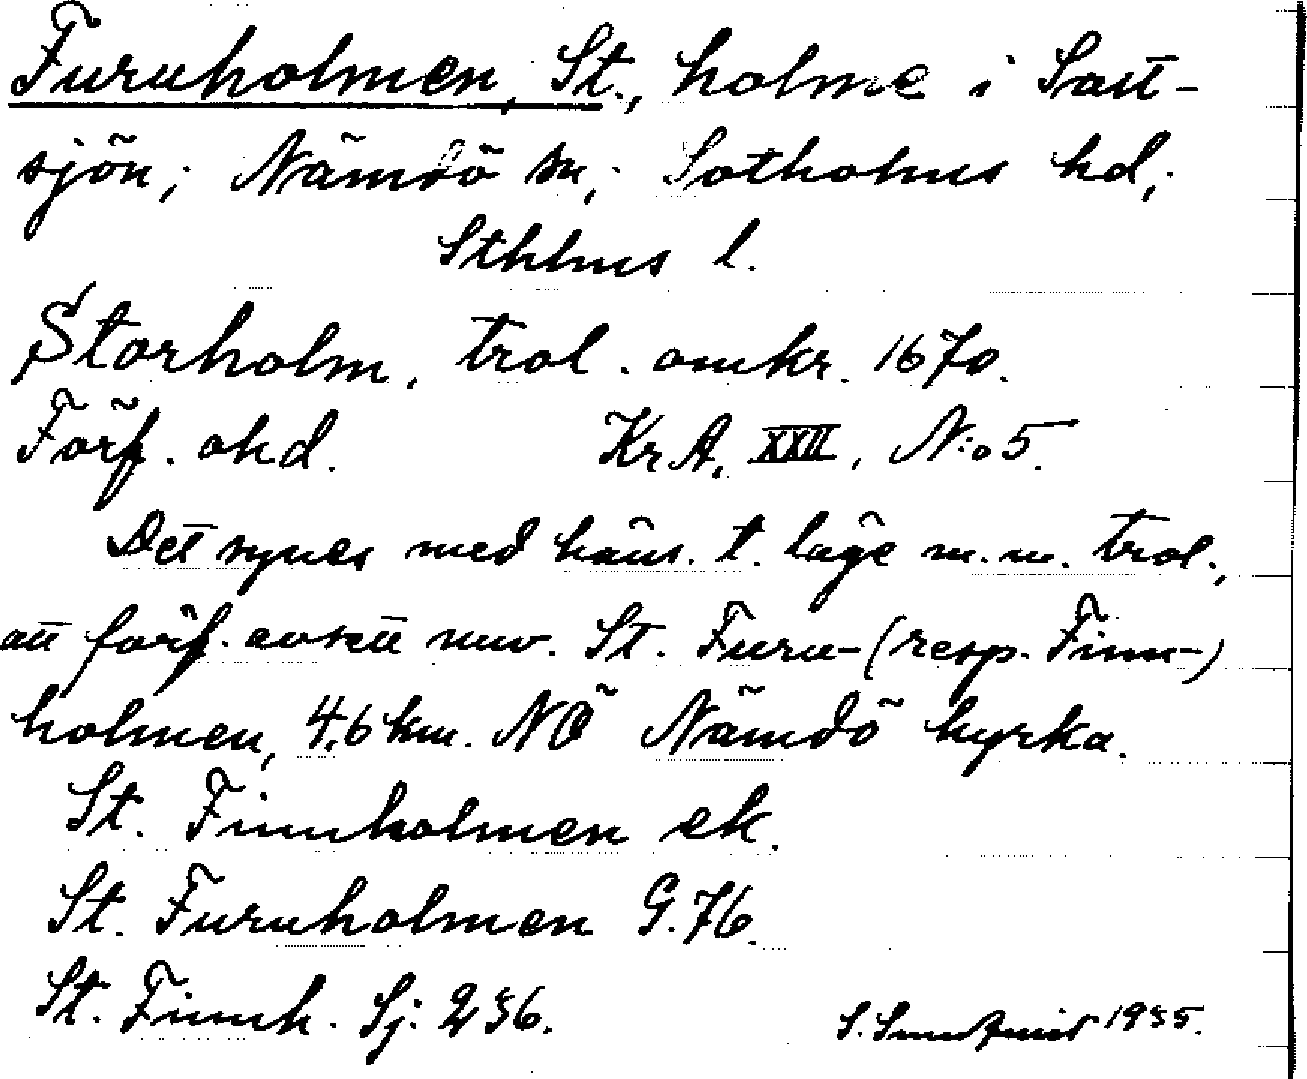 Furuholmen, St., holme i Salt-
sjön; Nämdö sn; Sotholms hd;
Sthlms l.
Storholm, trol. omkr. 1670.
Förf. okd. Kr A, XXII, N:o 5.
Det synes med häns. t. läge m.m. trol.,
att förf. avsett nuv. St. Furu- (resp. Finn-)
holmen, 4,6 km. NÖ Nämdö kyrka.
St. Finnholmen ek.
St. Furuholmen G. 76.
St. Finnh. Sj. 236.
S. 1935.